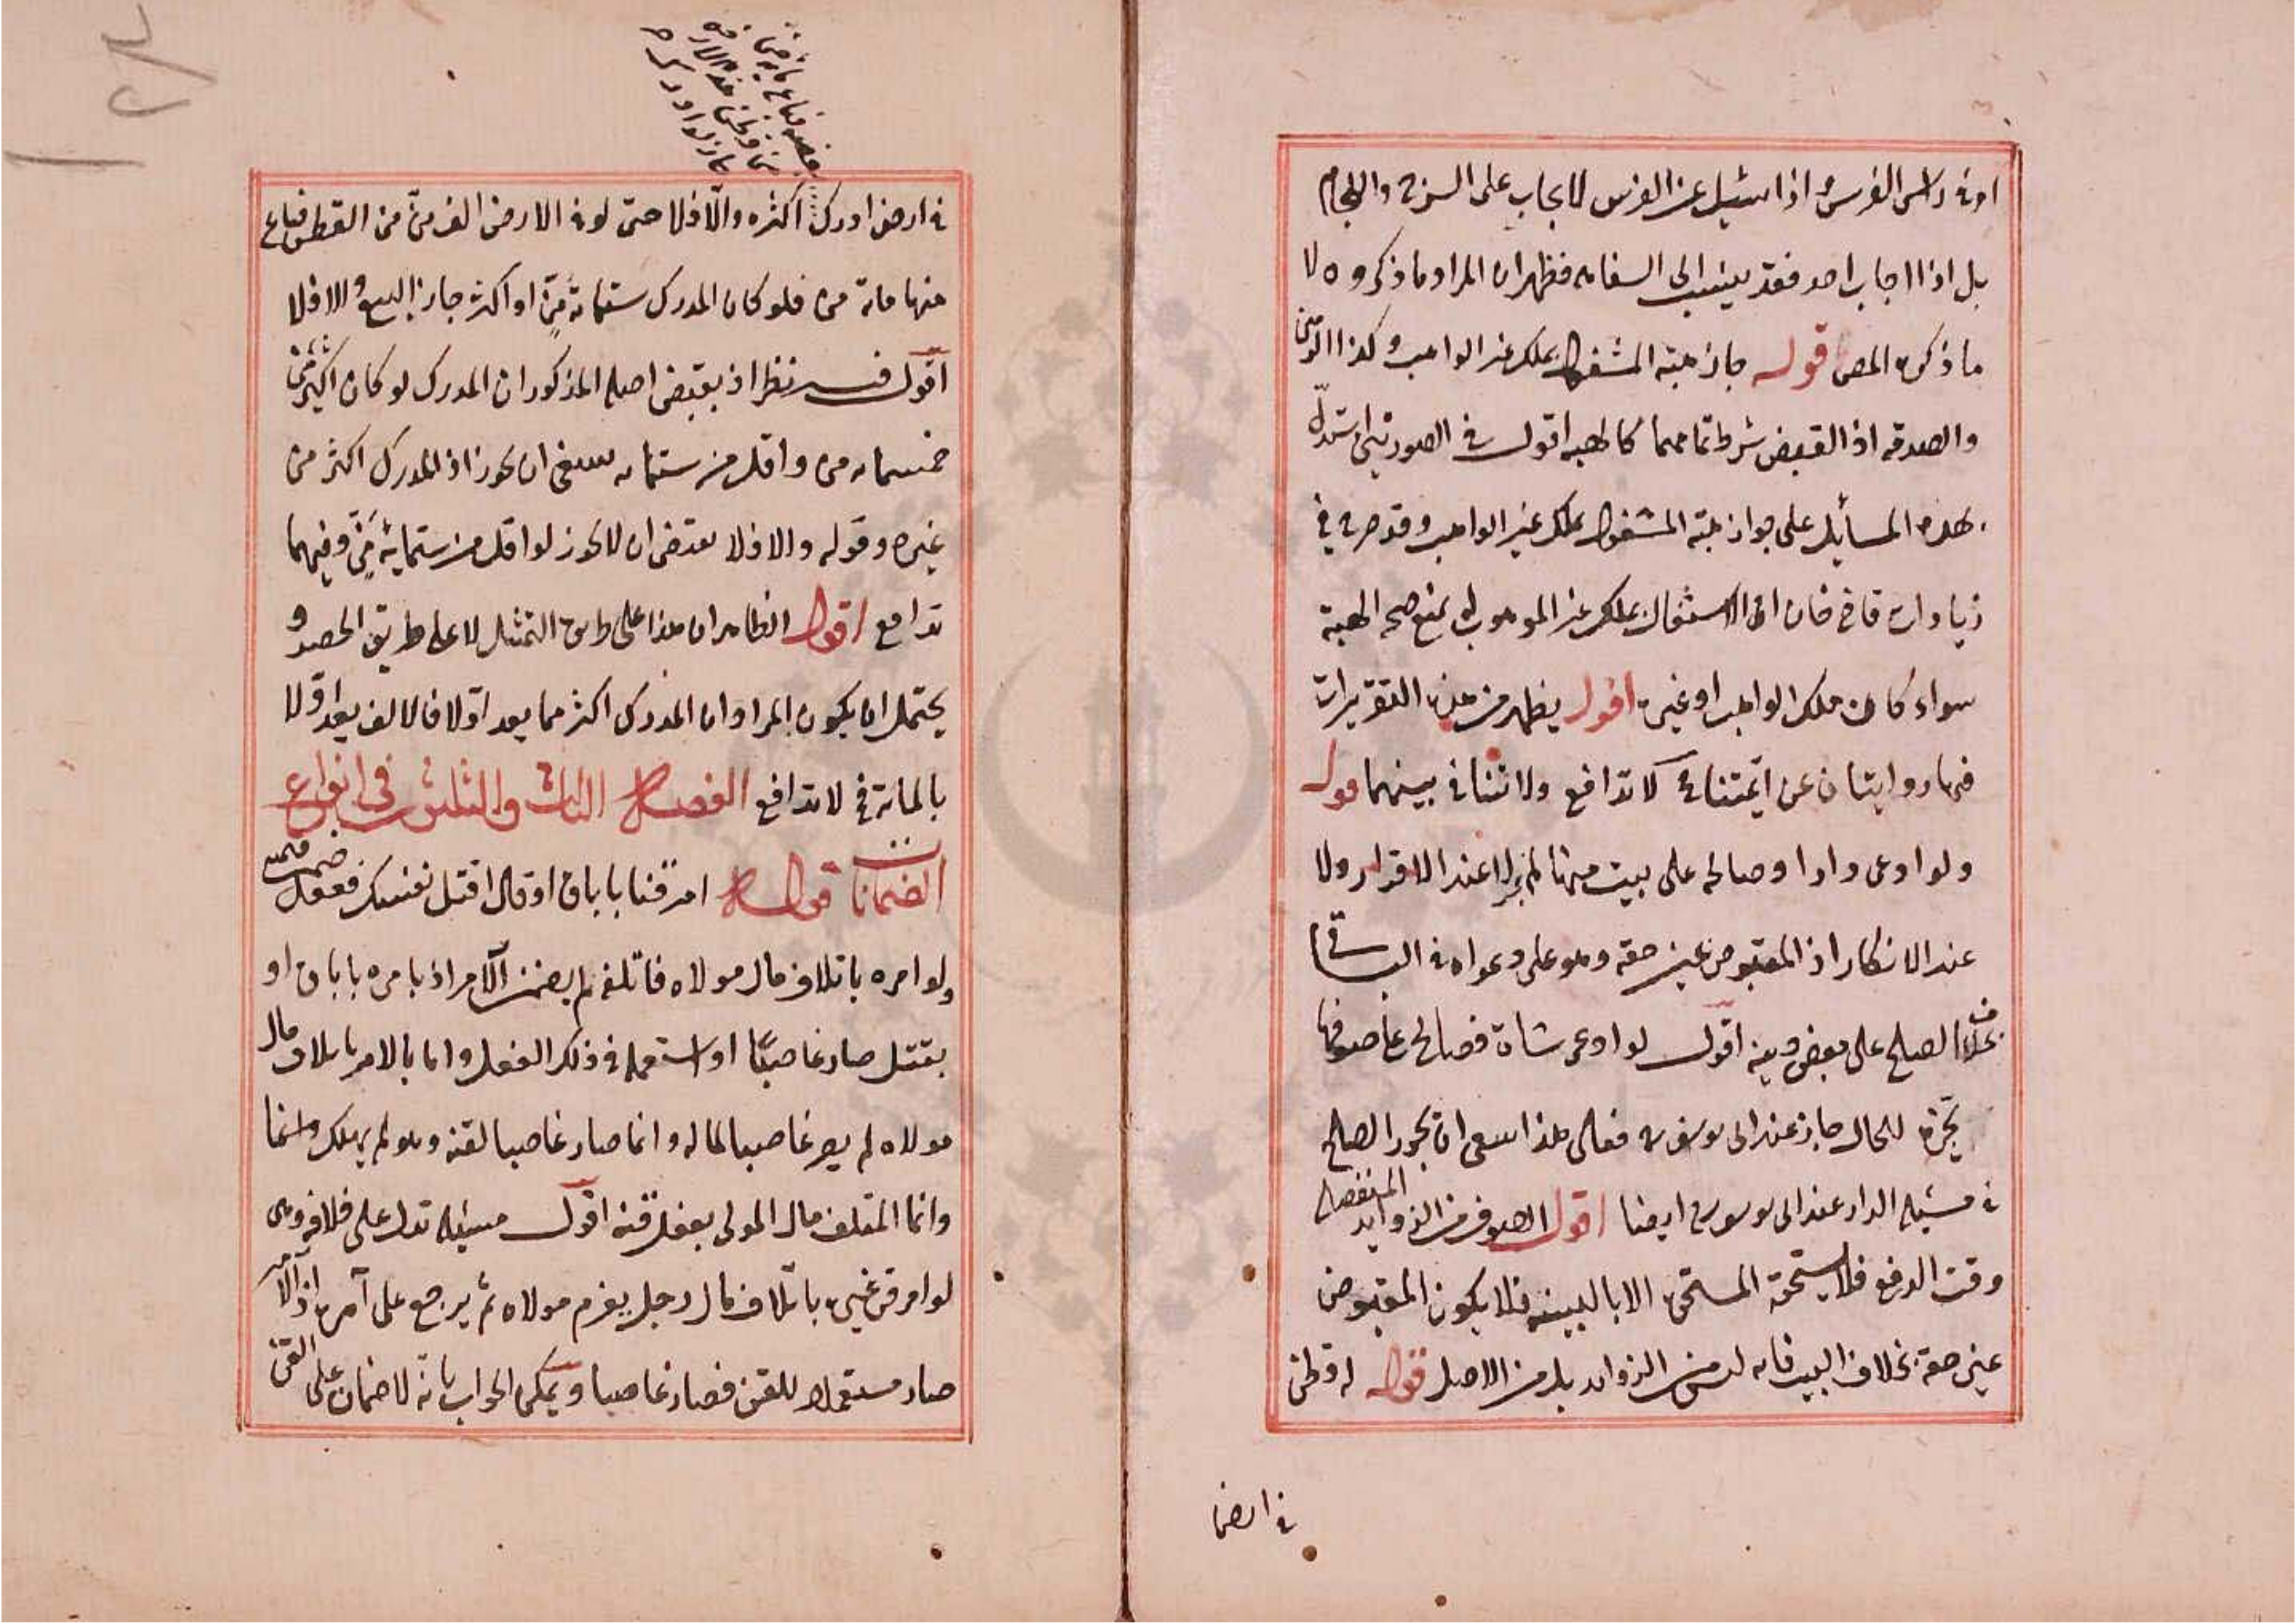 او في راس الفرس واذا سئيل عن الفرس لا يجاب على السرج واللجام
بل اذا اجاب احد فقد ينسب الى السفاهه فظهر ان المراد ما ذكروه لا
ما ذكره المص قوله جاز هبة المشغول بملك غير الواهب وكذا الرهن
والصدقه اذ القبض شرط تمامهما كالهبه اقول في الصورتين استدل
بهذه المسايل على جواز هبة المشغول بملك غير الواهب وقد صرح في
زيادات قاضي خان ان الاشتغال بملك غير الموهوب له يمنع صحه الهبة
سواء كان ملك الواهب او غيره اقول يظهر من هذه التقريرات
فيها روايتان عن ائمتنا لا تدافع ولا تنافي بينهما قوله
ولو ادعى دارا وصالحه على بيت منها لم يجز لا عند الاقرار ولا
عند الانكار اذ المقبوض عين حقه وهو على دعواه في الباقي
بخلاف الصلح على بعض دينه اقول لو ادعى شاة فصالح على صوفها
يجزه للحال جاز عند ابى يوسف فعلى هذا ينبغى ان يجوز الصلح
في مسئلة الدار عند ابى يوسف ايضا اقول الصوف من الزوايد المنفصل
وقت الدفع فلا يستحقه المستحق الا بالبينه فلا يكون المقبوض
عين حقه بخلاف البيت فانه ليس من الزوايد بل من الاصل قوله له قطن
في ارض
في ارض ادرك اكثره والا فلا حتى لو في الارض الف من من القطن فباع
منها مائة من فلو كان المدرك ستمائة من او اكثر جاز البيع والا فلا
اقول فيه نظر اذ يقتضي اصله المذكور ان المدرك لو كان اكثر من
خمسمايه من واقل من ستمايه ينبغي ان يجوز اذ المدرك اكثر من
غيره وقوله والا فلا يقتضى ان لا يجوز لو اقل من ستماية من وفيهما
تدافع اقول الظاهر ان هذا على طريق التمثيل لا على طريق الحصر و
يحتمل ان يكون المراد ان المدرك اكثر مما يعد اولا فالالف يعد اولا
بالمائة فلا تدافع الفصل الثالث والثلثون في انواع
الضمانات قوله امر قنا باباق او قال اقتل نفسك ففعل ضمن قيمته
ولو امره باتلاف مال مولاه فاتلفه لم يضمن الآمر اذ بامره باباق او
بقتل صار غاصبا او استعمله في ذلك الفعل واما بالامر باتلاف مال
مولاه لم يصر غاصبا لماله وانما صار غاصبا لقنه وهو لم يهلك وانما
وانما المتلف مال المولى بفعل قنه اقول مسئله تدل على خلافه وهى
لو امر قن غيره باتلاف مال رجل يغرم مولاه ثم يرجع على آمره اذ الآمر
صار مستعملا للقن فصار غاصبا ويمكن الجواب بانه لا ضمان على القن